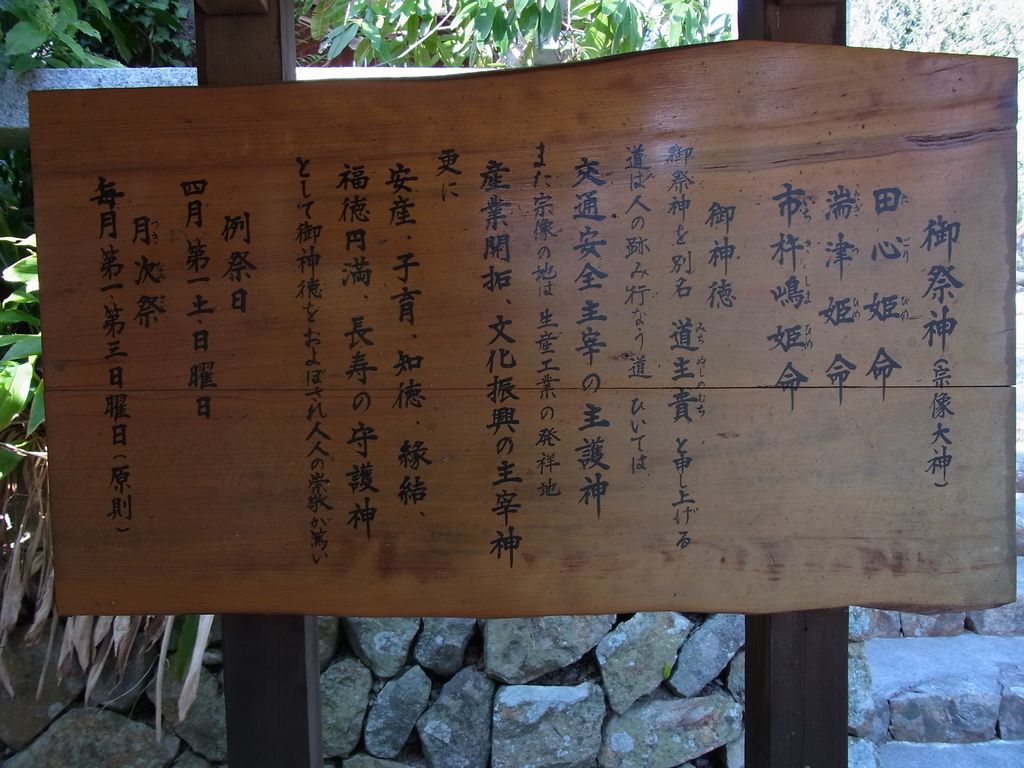 御祭神（宗像大神）
田心姫命
湍津姫命
市杵嶋姫命
御神徳
御祭神を別名 道主貴 と申し上げる
道は人の踏み行なう道 ひいては
交通安全主宰の主護神
また宗像の地は 生産工業の発祥地
産業開拓、文化振興の主宰神
更に
安産・子育、知徳、縁結、
福徳円満、長寿の守護神
として御神徳をおよぼされ人人の崇敬が篤い
例祭日
四月 第一土・日曜日
月次祭
毎月 第一・第三日曜日（原則）